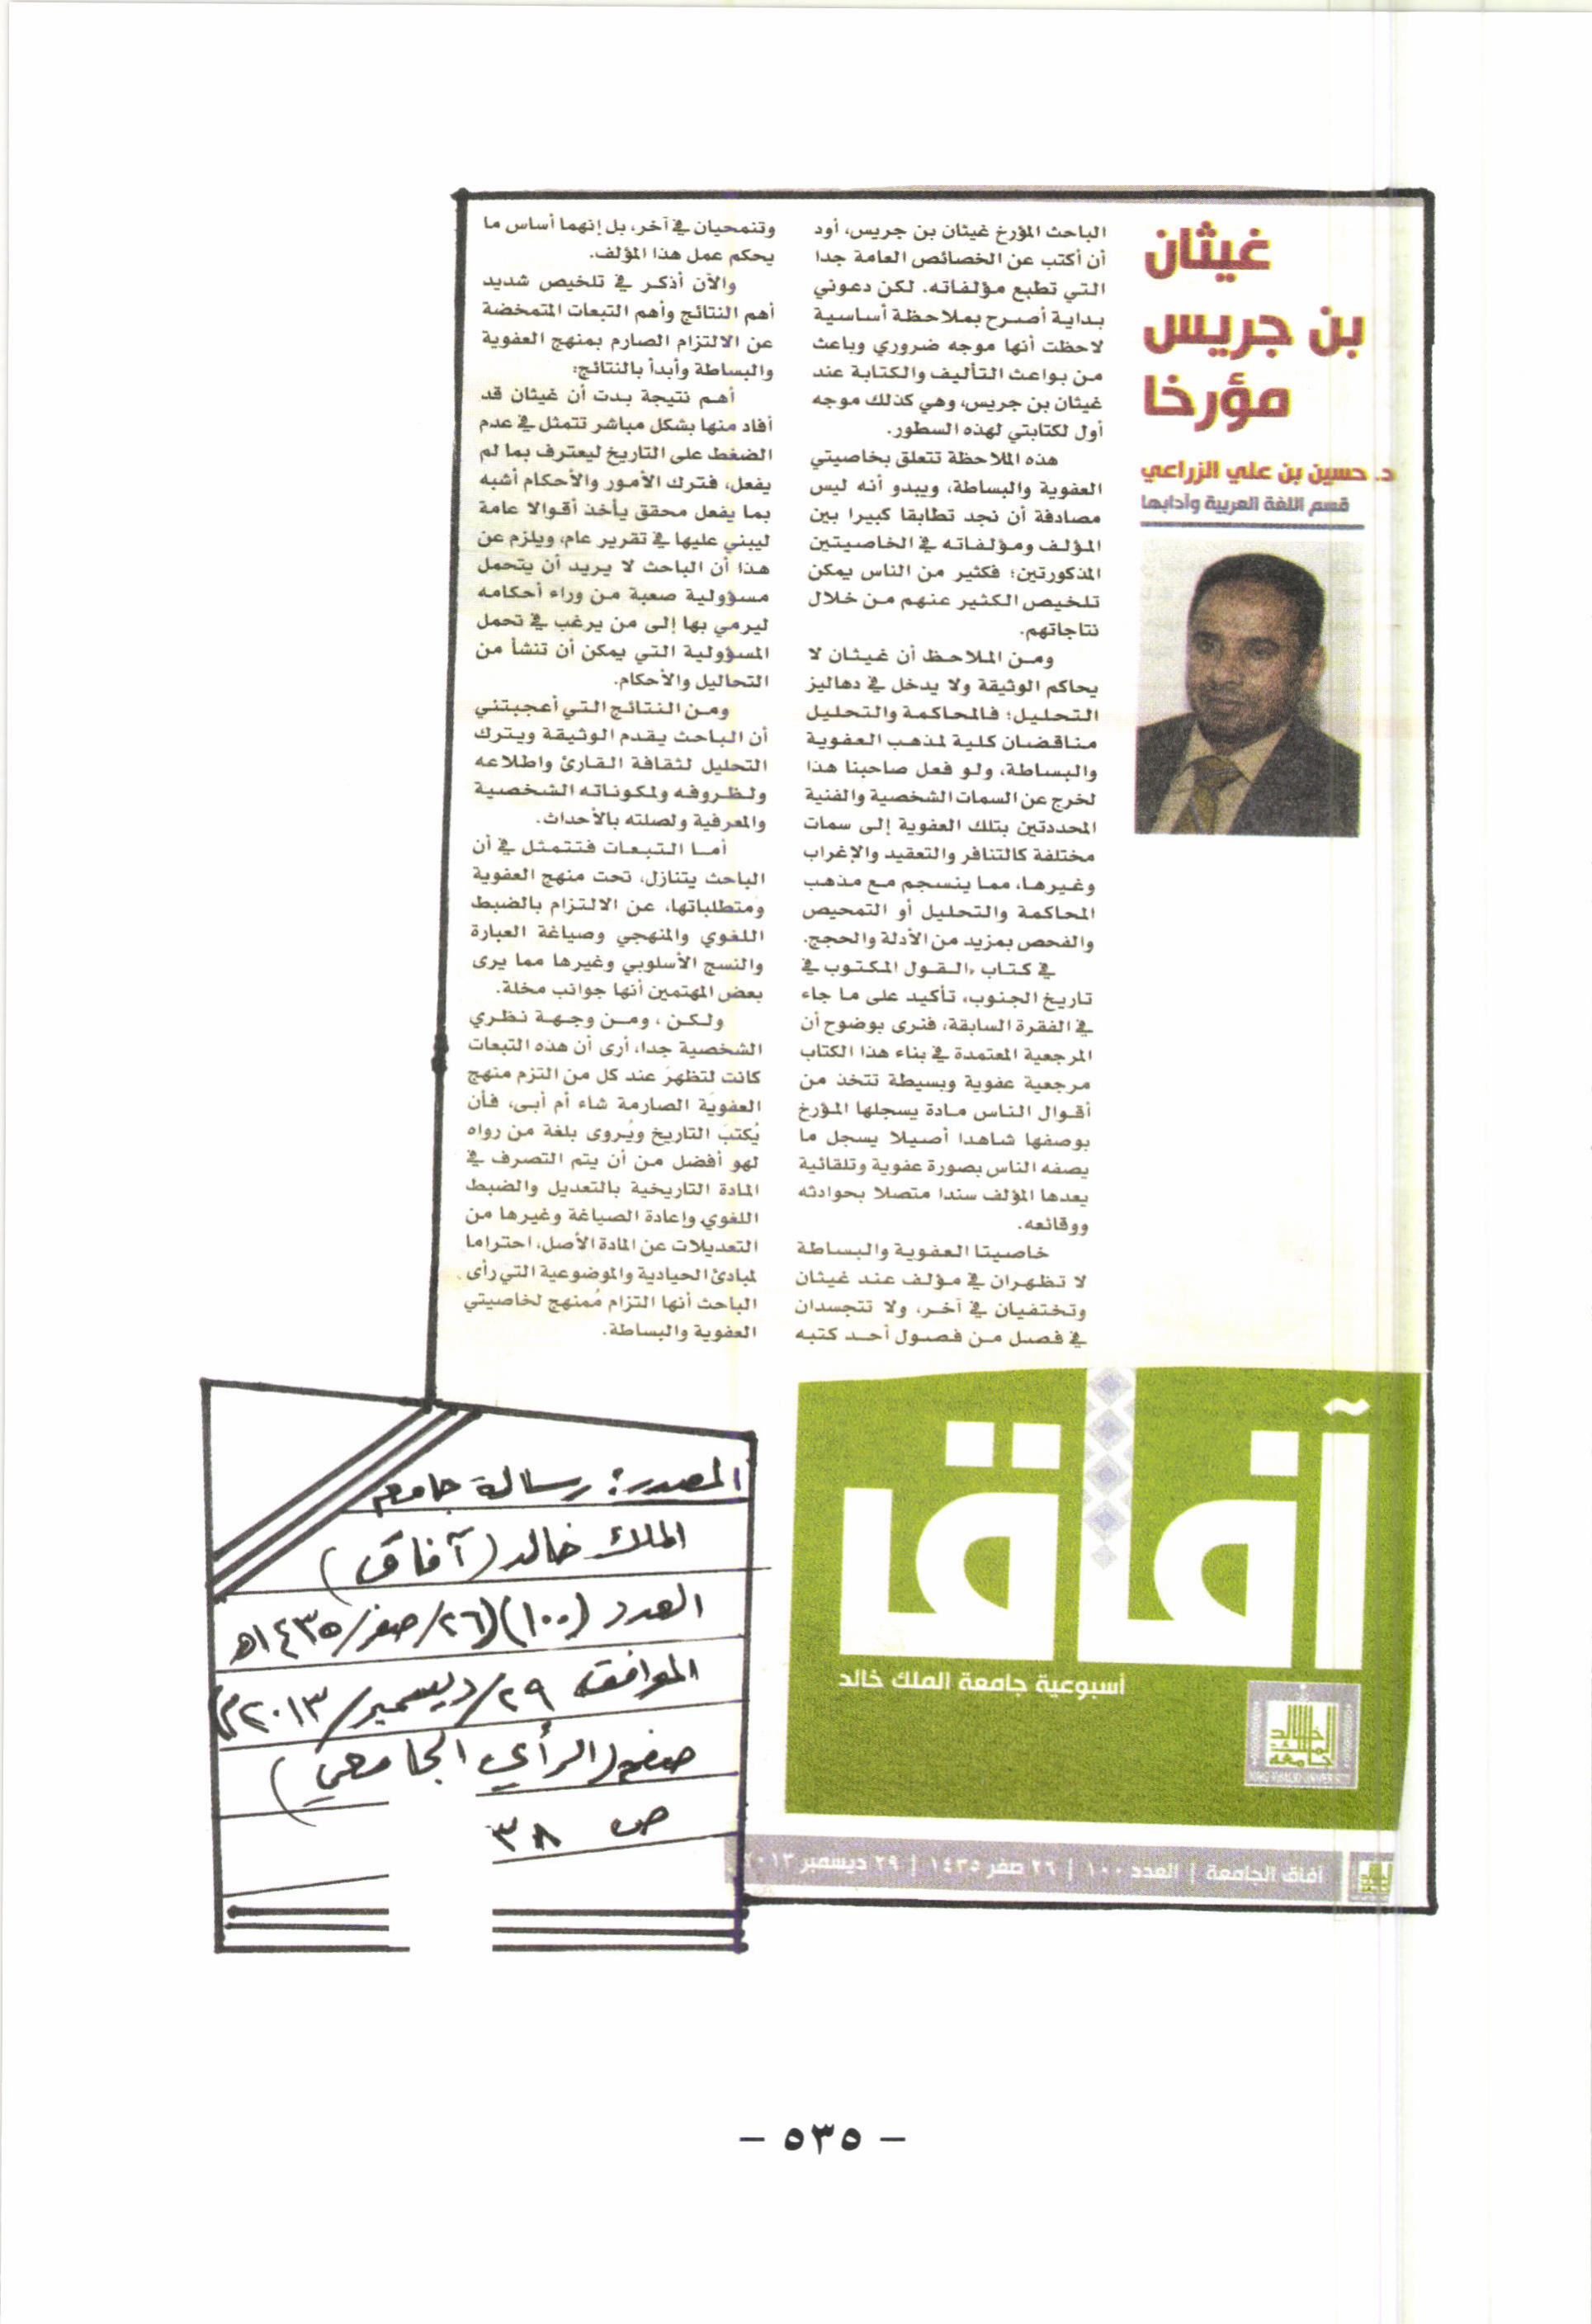 غيثان
بن جريس
مؤرخا
د. حسين بن علي الزراعي
قسم اللغة العربية وآدابها
الباحث المؤرخ غيثان بن جريس، أود
أن أكتب عن الخصائص العامة جدا
التي تطبع مؤلفاته. لكن دعوني
بداية أصرح بملاحظة أساسية
لاحظت أنها موجه ضروري وباعث
من بواعث التأليف والكتابة عند
غيثان بن جريس، وهي كذلك موجه
أول لكتابتي لهذه السطور.
هذه الملاحظة تتعلق بخاصيتي
العفوية والبساطة، ويبدو أنه ليس
مصادفة أن نجد تطابقا كبيرا بين
المؤلف ومؤلفاته في الخاصيتين
المذكورتين؛ فكثير من الناس يمكن
تلخيص الكثير عنهم من خلال
نتاجاتهم.
ومن الملاحظ أن غيثان لا
يحاكم الوثيقة ولا يدخل في دهاليز
التحليل؛ فالمحاكمة والتحليل
مناقضان كلية لمذهب العفوية
والبساطة، ولو فعل صاحبنا هذا
لخرج عن السمات الشخصية والفنية
المحددتين بتلك العفوية إلى سمات
مختلفة كالتنافر والتعقيد والإغراب
وغيرها، مما ينسجم مع مذهب
المحاكمة والتحليل أو التمحيص
والفحص بمزيد من الأدلة والحجج.
في كتاب «القول المكتوب في
تاريخ الجنوب، تأكيد على ما جاء
في الفقرة السابقة، فنرى بوضوح أن
المرجعية المعتمدة في بناء هذا الكتاب
مرجعية عفوية وبسيطة تتخذ من
أقوال الناس مادة يسجلها المؤرخ
بوصفها شاهدا أصيلا يسجل ما
يصفه الناس بصورة عفوية وتلقائية
يعدها المؤلف سندا متصلا بحوادثه
ووقائعه.
خاصيتا العفوية والبساطة
لا تظهران في مؤلف عند غيثان
وتختفيان في آخر، ولا تتجسدان
في فصل من فصول أحد كتبه
وتنمحيان في آخر، بل إنهما أساس ما
يحكم عمل هذا المؤلف.
والآن أذكر في تلخيص شديد
أهم النتائج وأهم التبعات المتمخضة
عن الالتزام الصارم بمنهج العفوية
والبساطة وأبدأ بالنتائج:
أهم نتيجة بدت أن غيثان قد
أفاد منها بشكل مباشر تتمثل في عدم
الضغط على التاريخ ليعترف بما لم
يفعل، فترك الأمور والأحكام أشبه
بما يفعل محقق يأخذ أقوالا عامة
ليبني عليها في تقرير عام، ويلزم عن
هذا أن الباحث لا يريد أن يتحمل
مسؤولية صعبة من وراء أحكامه
ليرمي بها إلى من يرغب في تحمل
المسؤولية التي يمكن أن تنشأ من
التحاليل والأحكام.
ومن النتائج التي أعجبتني
أن الباحث يقدم الوثيقة ويترك
التحليل لثقافة القارئ واطلاعه
ولظروفه ولمكوناته الشخصية
والمعرفية ولصلته بالأحداث.
أما التبعات فتتمثل في أن
الباحث يتنازل، تحت منهج العفوية
ومتطلباتها، عن الالتزام بالضبط
اللغوي والمنهجي وصياغة العبارة
والنسج الأسلوبي وغيرها مما يرى
بعض المهتمين أنها جوانب مخلة.
ولكن، ومن وجهة نظري
الشخصية جدا، أرى أن هذه التبعات
كانت لتظهرَ عند كل من التزم منهج
العفويّة الصارمة شاء أم أبى، فأن
يُكتبَ التاريخ ويُروى بلغة من رواه
لهو أفضل من أن يتم التصرف في
المادة التاريخية بالتعديل والضبط
اللغوي وإعادة الصياغة وغيرها من
التعديلات عن المادة الأصل، احتراما
لمبادئ الحيادية والموضوعية التي رأى
الباحث أنها التزام مُمنهج لخاصيتي
العفوية والبساطة.
آفاق
أسبوعية جامعة الملك خالد
جامعة الملك خالد
KING KHALID UNIVERSITY
آفاق الجامعة | العدد ١٠٠ | ٢٦ صفر ١٤٣٥ | ٢٩ ديسمبر ٢٠١٣
المصدر: رسالة جامعة
الملك خالد (آفاق)
العدد (١٠٠) (٢٦/صفر/١٤٣٥هـ
الموافق ٢٩/ديسمبر/٢٠١٣م)
صفحة (الرأي الجامعي)
ص ٣٨
- ٥٣٥ -